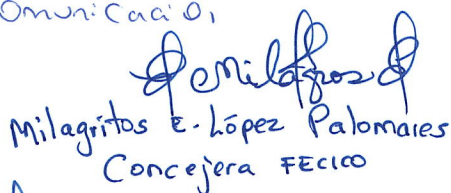 omunicació,
Milagros
Milagritos E. López Palomares
Concejera FECICO